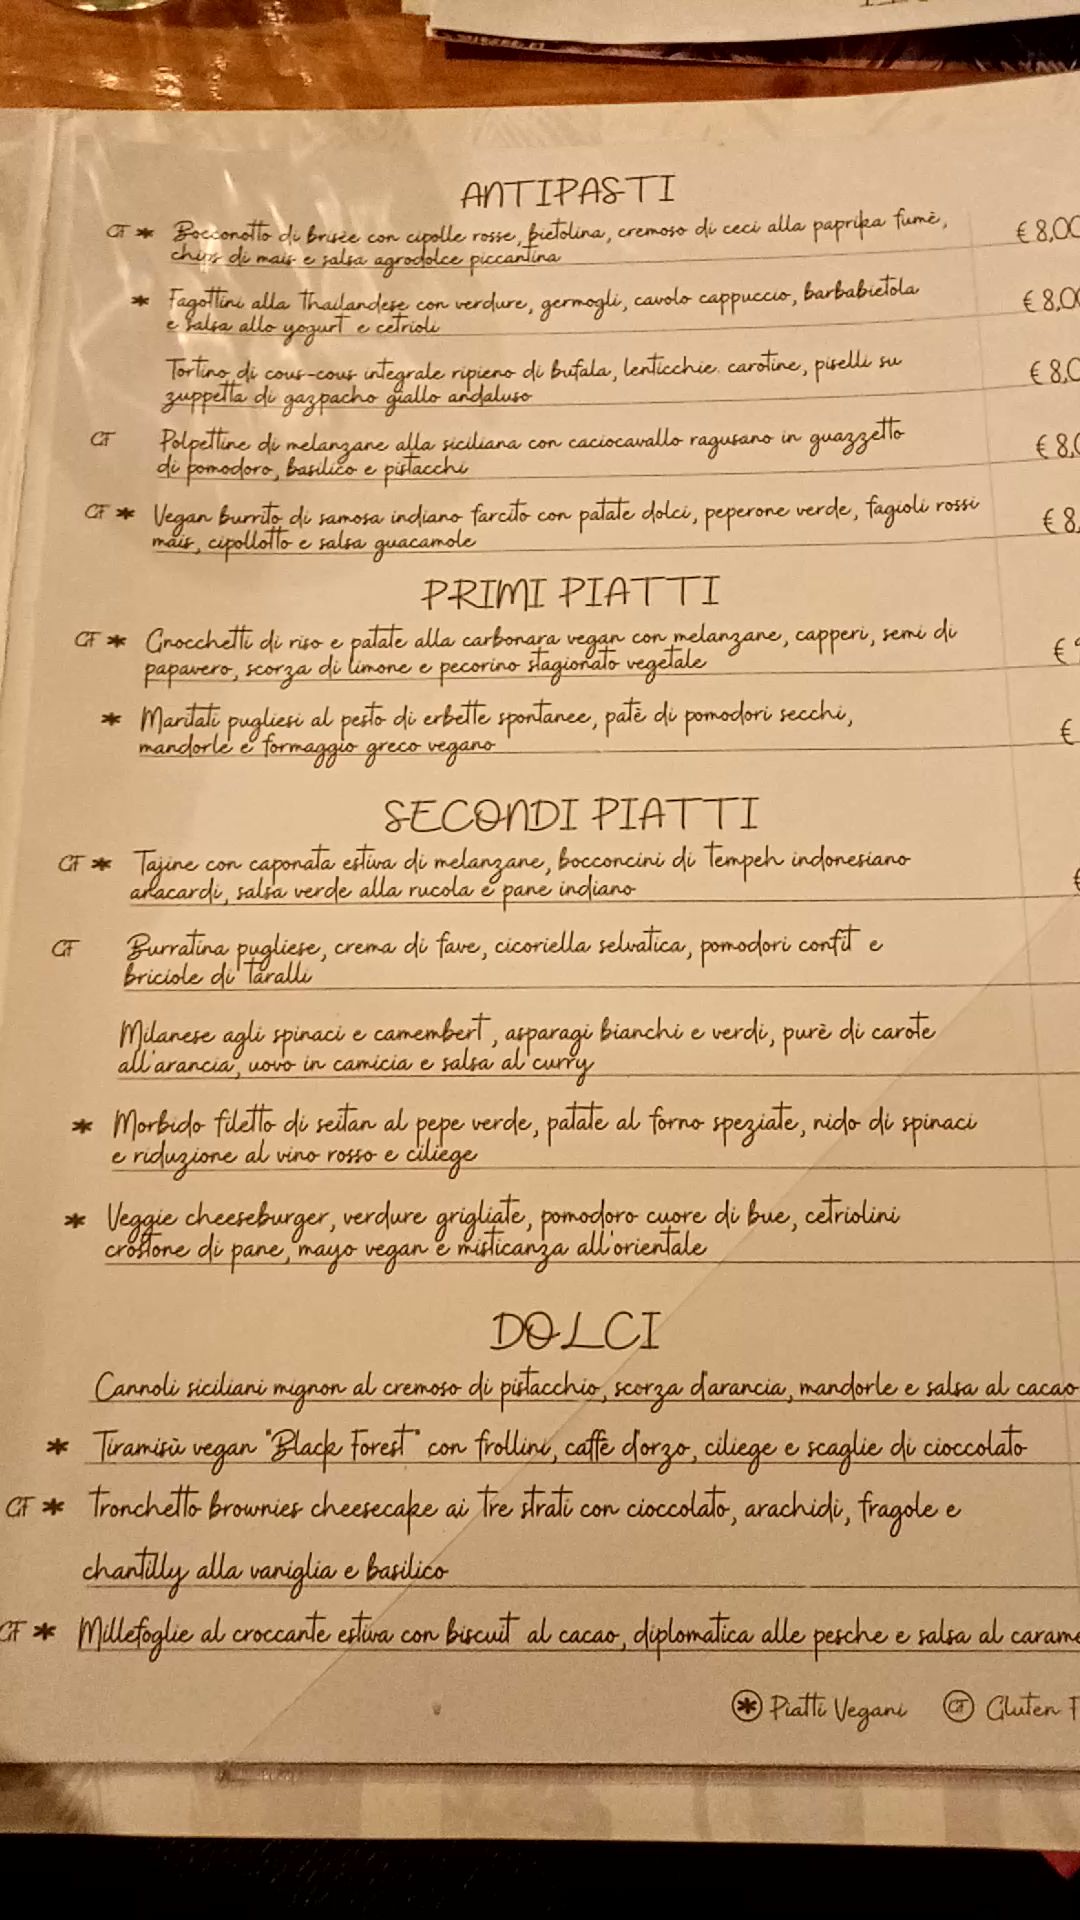 ANTIPASTI
GF * Bocconotto di brisèe con cipolle rosse, bietolina, cremoso di ceci alla paprika fumè, € 8,00
chips di mais e salsa agrodolce piccantina
* Fagottini alla thailandese con verdure, germogli, cavolo cappuccio, barbabietola € 8,00
e salsa allo yogurt e cetrioli
Tortino di cous-cous integrale ripieno di bufala, lenticchie. carotine, piselli su € 8,0
zuppetta di gazpacho giallo andaluso
GF Polpettine di melanzane alla siciliana con caciocavallo ragusano in guazzetto € 8,0
di pomodoro, basilico e pistacchi
GF * Vegan burrito di samosa indiano farcito con patate dolci, peperone verde, fagioli rossi € 8,
mais, cipollotto e salsa guacamole
PRIMI PIATTI
GF * Gnocchetti di riso e patate alla carbonara vegan con melanzane, capperi, semi di €
papavero, scorza di limone e pecorino stagionato vegetale
* Maritati pugliesi al pesto di erbette spontanee, patè di pomodori secchi, €
mandorle e formaggio greco vegano
SECONDI PIATTI
GF * Tajine con caponata estiva di melanzane, bocconcini di tempeh indonesiano €
anacardi, salsa verde alla rucola e pane indiano
GF Burratina pugliese, crema di fave, cicoriella selvatica, pomodori confit e
briciole di taralli
Milanese agli spinaci e camembert, asparagi bianchi e verdi, purè di carote
all'arancia, uovo in camicia e salsa al curry
* Morbido filetto di seitan al pepe verde, patate al forno speziate, nido di spinaci
e riduzione al vino rosso e ciliege
* Veggie cheeseburger, verdure grigliate, pomodoro cuore di bue, cetriolini
crostone di pane, mayo vegan e misticanza all'orientale
DOLCI
Cannoli siciliani mignon al cremoso di pistacchio, scorza d'arancia, mandorle e salsa al cacao
* Tiramisù vegan "Black Forest" con frollini, caffè d'orzo, ciliege e scaglie di cioccolato
GF * Tronchetto brownies cheesecake ai tre strati con cioccolato, arachidi, fragole e
chantilly alla vaniglia e basilico
GF * Millefoglie al croccante estiva con biscuit al cacao, diplomatica alle pesche e salsa al carame
* Piatti Vegani GF Gluten F